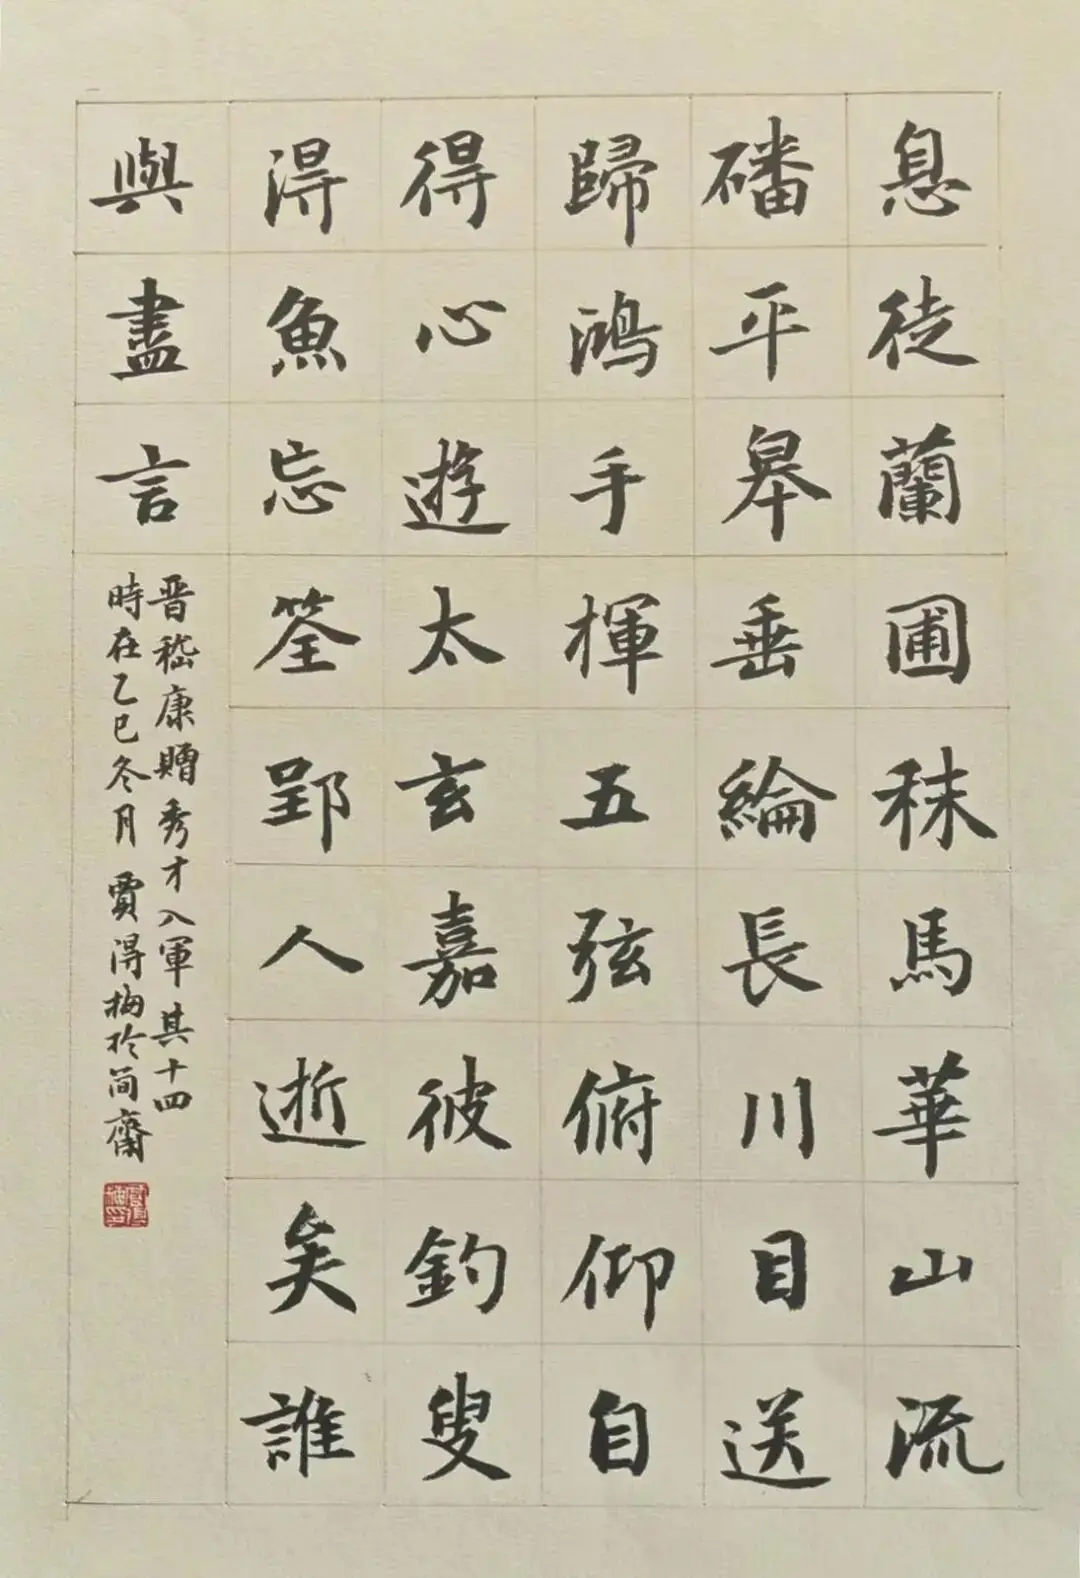 息徒蘭圃秣馬華山流
磻平皋垂綸長川目送
歸鴻手揮五弦俯仰自
得心遊太玄嘉彼釣叟
淂魚忘筌郢人逝矣誰
與盡言
晋嵇康贈秀才入軍其十四
時在乙巳冬月賈淂梅於简齋